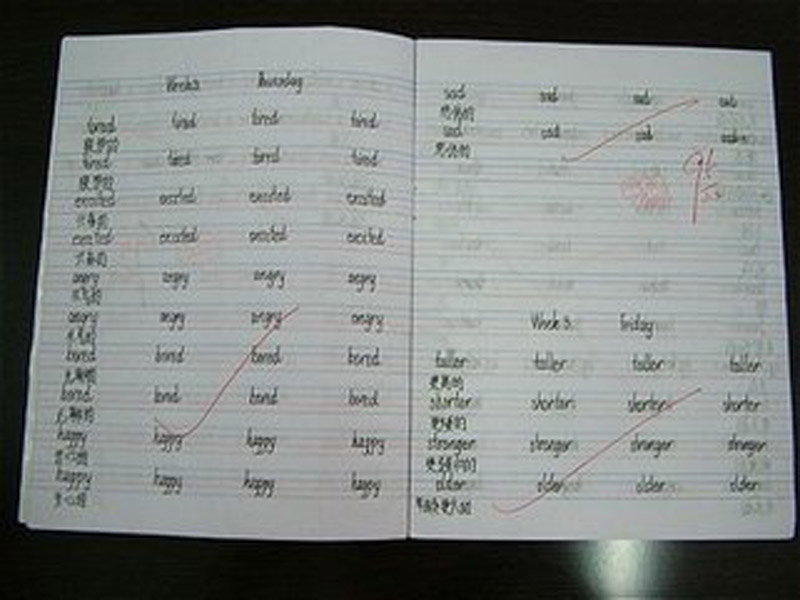 Week 3 Thursday
tired tired tired tired
疲劳的
tired tired tired tired
疲劳的
excited excited excited excited
兴奋的
excited excited excited excited
兴奋的
angry angry angry angry
生气的
angry angry angry angry
生气的
bored bored bored bored
无聊的
bored bored bored bored
无聊的
happy happy happy happy
happy happy happy happy
sad sad sad sad
悲伤的
sad sad sad sad
悲伤的
Week 3 Friday
taller taller taller taller
更高的
shorter shorter shorter shorter
更矮的
stronger stronger stronger stronger
更强壮的
older older older older